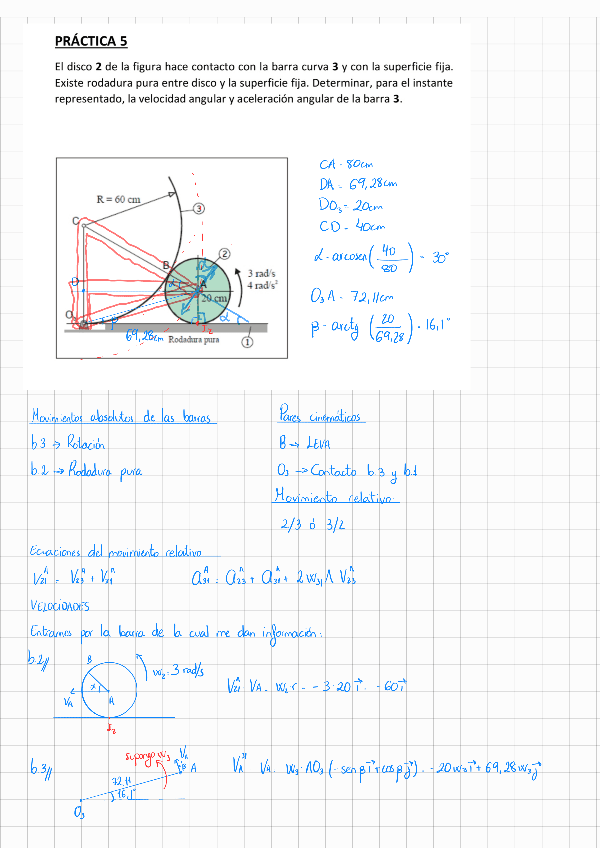 PRÁCTICA 5
El disco 2 de la figura hace contacto con la barra curva 3 y con la superficie fija.
Existe rodadura pura entre disco y la superficie fija. Determinar, para el instante
representado, la velocidad angular y aceleración angular de la barra 3.
CA = 80cm
DA = 69,28cm
DO₃ = 20cm
CD = 40cm
α = arcosen(40/80) = 30°
O₃A = 72,11cm
β = arctg(20/69,28) = 16,1°
R = 60 cm
C
3
2
B
A
α
α
3 rad/s
4 rad/s²
20 cm
D
O
β
α
69,28cm
Rodadura pura
I₂
1
Movimientos absolutos de las barras
b.3 → Rotación
b.2 → Rodadura pura
Pares cinemáticos
B → LEVA
O₃ → Contacto b.3 y b.1
Movimiento relativo
2/3 ó 3/2
Ecuaciones del movimiento relativo
V₂₁ᴬ = V₂₃ᴬ + V₃₁ᴬ
a₂₁ᴬ = a₂₃ᴬ + a₃₁ᴬ + 2 w₃₁ Λ V₂₃ᴬ
VELOCIDADES
Entramos por la barra de la cual me dan información:
b.2//
B
w₂ = 3 rad/s
V_A
A
I₂
V₂₁ᴬ V_A = w₂ · r = -3·20 i⃗ = -60 i⃗
b.3//
supongo w₃
V_A
A
72,11
16,1°
O₃
V_A = w₃ · AO₃ (-sen β i⃗ + cos β j⃗) = -20 w₃ i⃗ + 69,28 w₃ j⃗